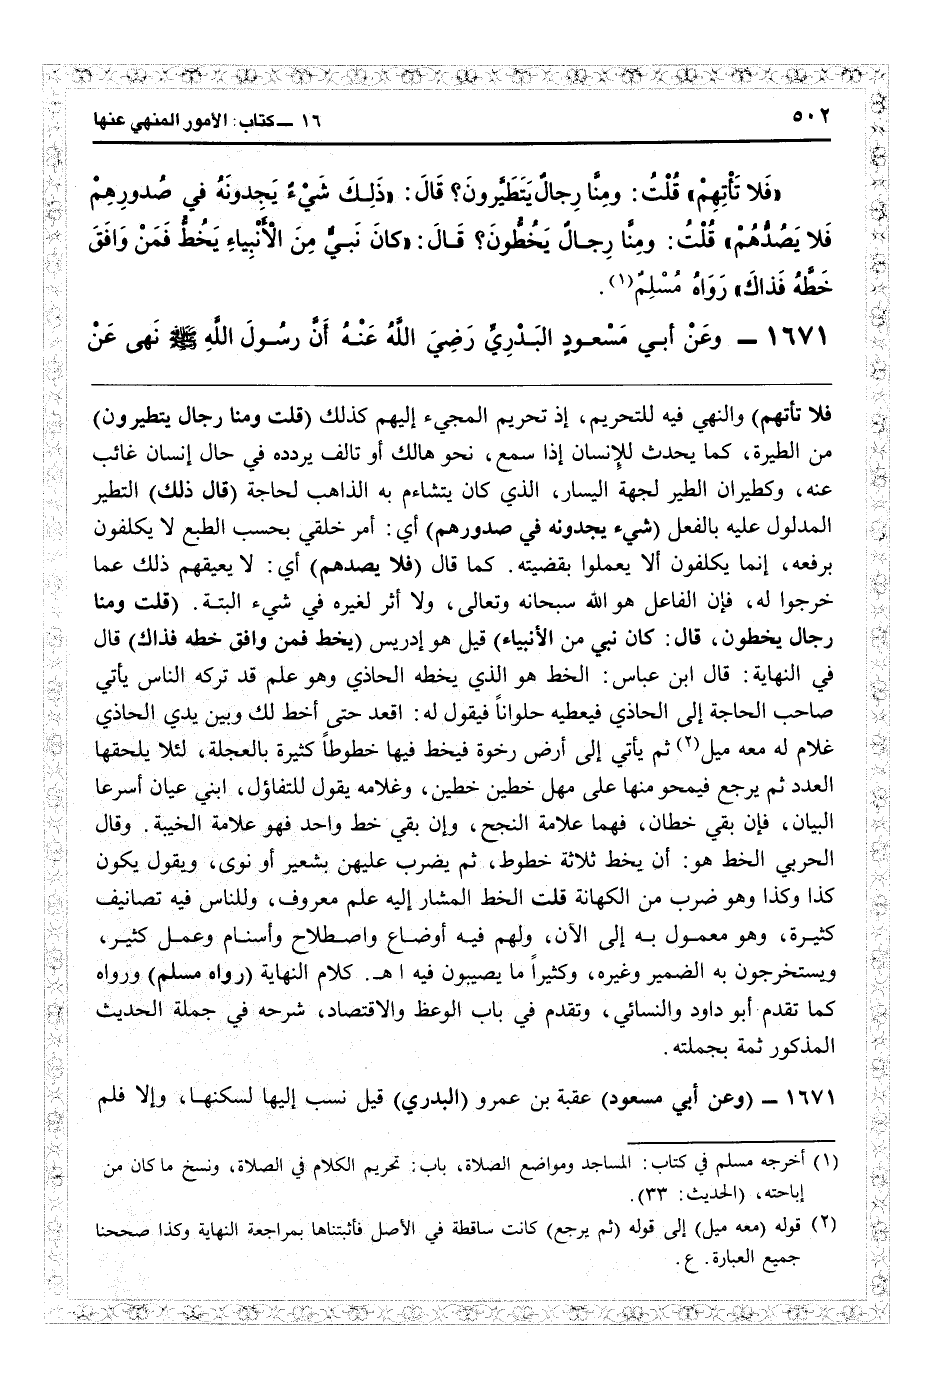 ٥٠٢
١٦ ــ كتاب: الأمور المنهي عنها
«فَلا تَأْتِهِمْ» قُلْتُ: ومِنَّا رِجالٌ يَتَطَيَّرونَ؟ قَالَ: «ذَلِكَ شَيْءٌ يَجِدونَهُ في صُدورِهِمْ
فَلا يَصُدُّهُمْ» قُلْتُ: ومِنَّا رِجالٌ يَخُطُّونَ؟ قَالَ: «كانَ نَبيٌّ مِنَ الْأَنْبِياءِ يَخُطُّ فَمَنْ وَافَقَ
خَطَّهُ فَذاكَ» رَوَاهُ مُسْلِمٌ(١).
١٦٧١ ــ وعَنْ أبي مَسْعودٍ البَدْرِيِّ رَضِيَ اللَّهُ عَنْهُ أَنَّ رسُولَ اللَّهِ ﷺ نَهى عَنْ
فلا تأتهم) والنهي فيه للتحريم، إذ تحريم المجيء إليهم كذلك (قلت ومنا رجال يتطيرون)
من الطيرة، كما يحدث للإنسان إذا سمع، نحو هالك أو تالف يردده في حال إنسان غائب
عنه، وكطيران الطير لجهة اليسار، الذي كان يتشاءم به الذاهب لحاجة (قال ذلك) التطير
المدلول عليه بالفعل (شيء يجدونه في صدورهم) أي: أمر خلقي بحسب الطبع لا يكلفون
برفعه، إنما يكلفون ألا يعملوا بقضيته. كما قال (فلا يصدهم) أي: لا يعيقهم ذلك عما
خرجوا له، فإن الفاعل هو الله سبحانه وتعالى، ولا أثر لغيره في شيء البتة. (قلت ومنا
رجال يخطون، قال: كان نبي من الأنبياء) قيل هو إدريس (يخط فمن وافق خطه فذاك) قال
في النهاية: قال ابن عباس: الخط هو الذي يخطه الحاذي وهو علم قد تركه الناس يأتي
صاحب الحاجة إلى الحاذي فيعطيه حلواناً فيقول له: اقعد حتى أخط لك وبين يدي الحاذي
غلام له معه ميل(٢) ثم يأتي إلى أرض رخوة فيخط فيها خطوطاً كثيرة بالعجلة، لئلا يلحقها
العدد ثم يرجع فيمحو منها على مهل خطين خطين، وغلامه يقول للتفاؤل، ابني عيان أسرعا
البيان، فإن بقي خطان، فهما علامة النجح، وإن بقي خط واحد فهو علامة الخيبة. وقال
الحربي الخط هو: أن يخط ثلاثة خطوط، ثم يضرب عليهن بشعير أو نوى، ويقول يكون
كذا وكذا وهو ضرب من الكهانة قلت الخط المشار إليه علم معروف، وللناس فيه تصانيف
كثيرة، وهو معمول به إلى الآن، ولهم فيه أوضاع واصطلاح وأسنام وعمل كثير،
ويستخرجون به الضمير وغيره، وكثيراً ما يصيبون فيه ا هـ. كلام النهاية (رواه مسلم) ورواه
كما تقدم أبو داود والنسائي، وتقدم في باب الوعظ والاقتصاد، شرحه في جملة الحديث
المذكور ثمة بجملته.
١٦٧١ ــ (وعن أبي مسعود) عقبة بن عمرو (البدري) قيل نسب إليها لسكنها، وإلا فلم
(١) أخرجه مسلم في كتاب: المساجد ومواضع الصلاة، باب: تحريم الكلام في الصلاة، ونسخ ما كان من
إباحته، (الحديث: ٣٣).
(٢) قوله (معه ميل) إلى قوله (ثم يرجع) كانت ساقطة في الأصل فأثبتناها بمراجعة النهاية وكذا صححنا
جميع العبارة. ع.